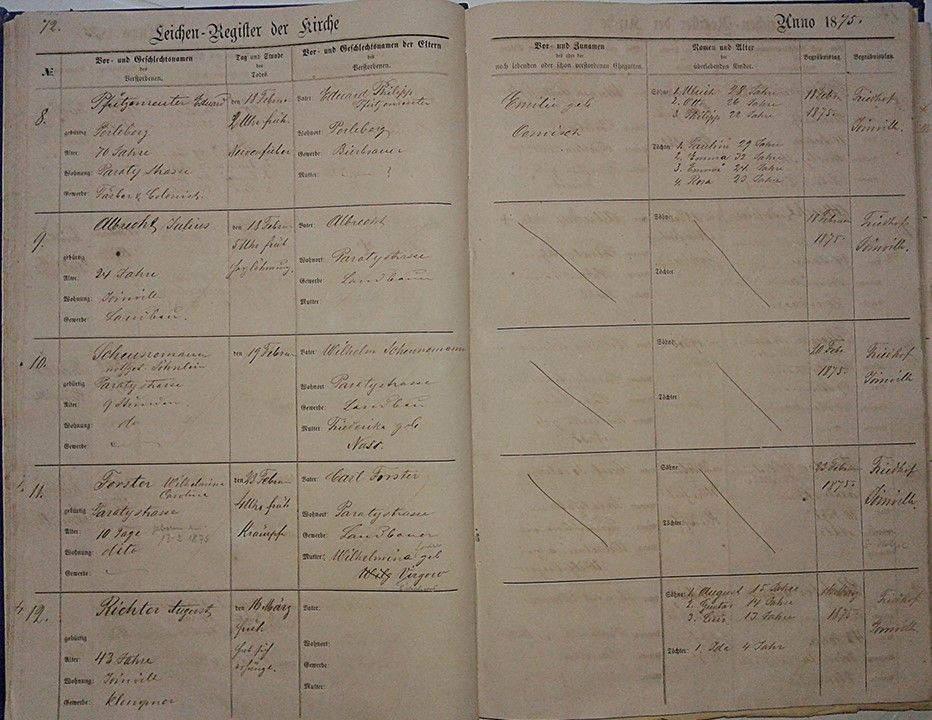 72.
Leichen-Register der Kirche
Anno 1875.
№
Vor- und Geschlechtsnamen
des
Verstorbenen.
Tag und Stunde
des
Todes
Vor- und Geschlechtsnamen der Eltern
des
Verstorbenen.
Vor- und Zunamen
noch lebenden oder schon verstorbenen Ehegatten.
Namen und Alter
der
überlebenden Kinder.
Begräbnißtag.
Begräbnißplatz.
8.
Eduard
gebürtig Perleberg
Alter: 70 Jahre
Wohnung: Paraty Strasse
Gewerbe: Färber & Colonist.
den 18 Febru
2 Uhr früh
Nervenfieber
Vater: Eduard Philipp
Wohnort Perleberg
Gewerbe: Bierbrauer
Mutter: ?
Emilie geb
Söhne 1. Ulrich 28 Jahre
2. Otto 26 Jahre
3. Philipp 22 Jahre
Töchter 1. Pauline 29 Jahre
2. Emma 32 Jahre
24 Jahre
4. Rosa 23 Jahre
18 Febr.
1875.
Friedhof
Joinville.
9.
Albrecht, Julius
gebürtig
Alter: 24 Jahre
Wohnung: Joinville
Gewerbe: Landbau.
den 18 Febru
5 Uhr früh
Vater: Albrecht
Wohnort: Paratystrasse
Gewerbe: Landbauer
Mutter:
Söhne:
Töchter
1875.
Friedhof
Joinville.
10.
Scheunemann
Söhnlein
gebürtig Paratystrasse
Alter: 9 Stunden.
Wohnung: do
Gewerbe:
den 19 Febru
Vater: Wilhelm Scheunemann
Wohnort Paratystrasse
Gewerbe: Landbau
Mutter: Friederike geb
Nass.
Söhne:
Töchter
20 Febr
1875.
Friedhof
Joinville
11.
Forster Wilhelmine
Caroline
gebürtig Paratystrasse
Alter: 10 Tage
13-2 1875
Wohnung: dito
Gewerbe:
den 23 Febru
Uhr früh
Krämpfe
Vater: Carl Forster
Wohnort: Paratystrasse
Gewerbe: Landbauer
Mutter: Wilhelmine geb
Virgow
Söhne:
Töchter:
23 Februar
1875.
Friedhof
Joinville
12.
Richter August
gebürtig
Alter: 43 Jahre
Wohnung: Joinville
Gewerbe: Klempner
den 16 März
früh
hat sich
erhängt.
Vater:
Wohnort:
Gewerbe:
Mutter:
Söhne: 1. August 15 Jahre
2. Gustav 14 Jahre
3. 13 Jahre
Töchter: 1. Ida 4 Jahr
1875
Friedhof
Joinville